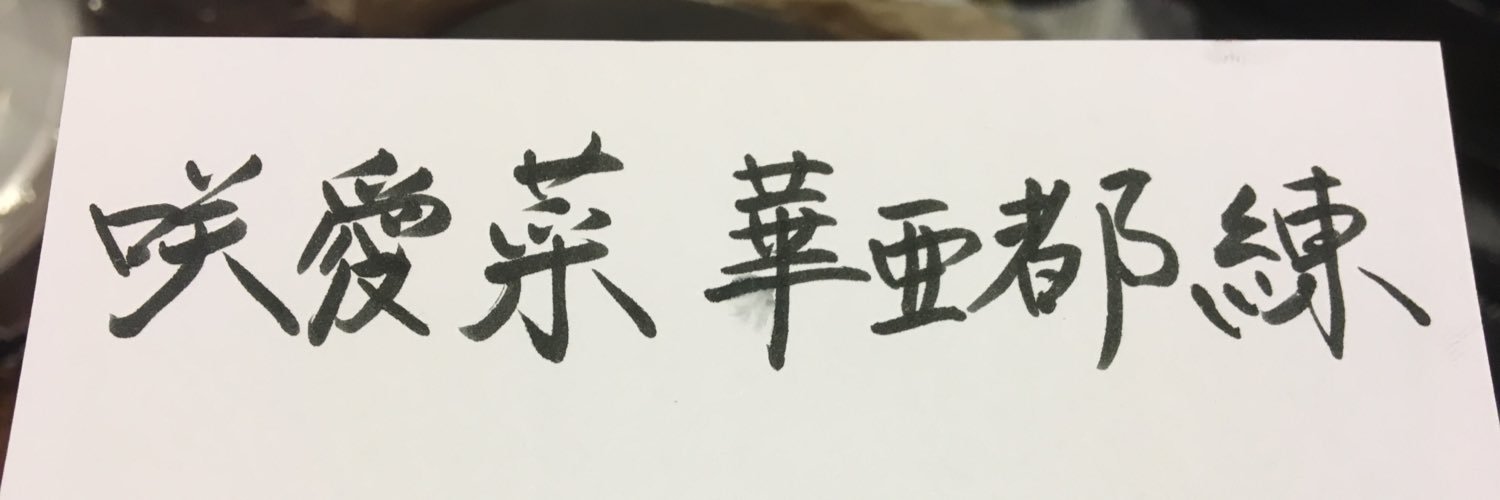 咲愛菜 華亜都練